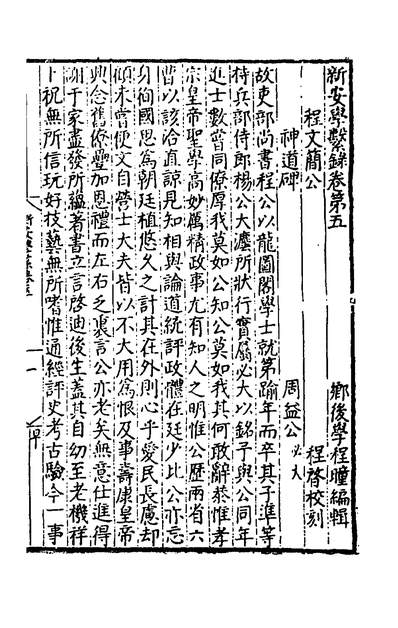 新安學繫錄卷第五
鄉後學程曈編輯
程啓校刻
程文簡公
神道碑
周益公必大
故吏部尚書程公以龍圖閣學士就第踰年而卒其子準等
持兵部侍郎楊公大灋所狀行實屬必大以銘予與公同年
進士數嘗同僚厚我莫如公知公莫如我其何敢辭恭惟孝
宗皇帝聖學高妙厲精政事尤有知人之明惟公歷兩省六
曹以該洽直諒見知相與論道統評政體在廷少比公亦忘
身徇國思爲朝廷植悠久之計其在外則心乎愛民長慮却
顧未嘗便文自營士大夫皆以不大用爲恨及事壽康皇帝
興念舊僚疊加恩禮而左右乏裏言公亦老矣無意仕進得
謝于家盡發所蘊著書立言啓迪後生蓋其自幼至老機祥
卜祝無所信玩好技藝無所嗜惟通經評史考古驗今一事